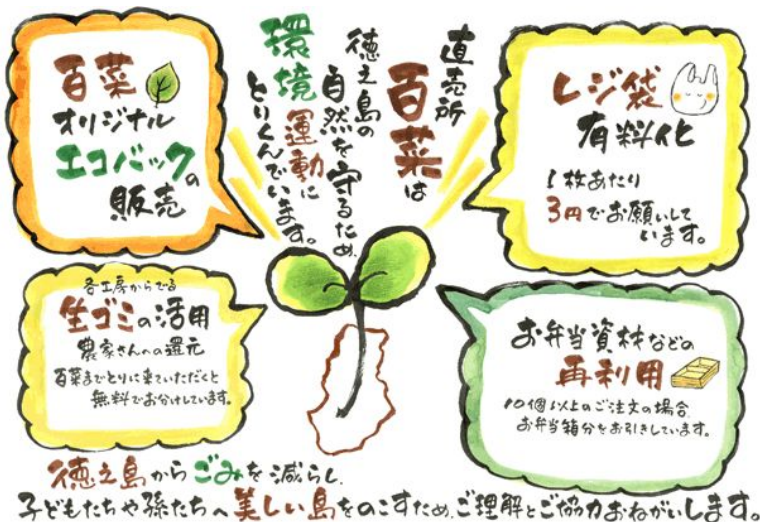 直売所
百菜は
徳之島の
自然を守るため、
環境運動に
とりくんでいます。
百菜
オリジナル
エコバックの
販売
レジ袋
有料化
1枚あたり
3円でお願いして
います。
各工房からでる
生ゴミの活用
農家さんへの還元
百菜までとりに来ていただくと
無料でお分けしています。
お弁当資材などの
再利用
10個以上のご注文の場合、
お弁当箱分をお引きしています。
徳之島からごみを減らし、
子どもたちや孫たちへ美しい島をのこすため、ご理解とご協力おねがいします。